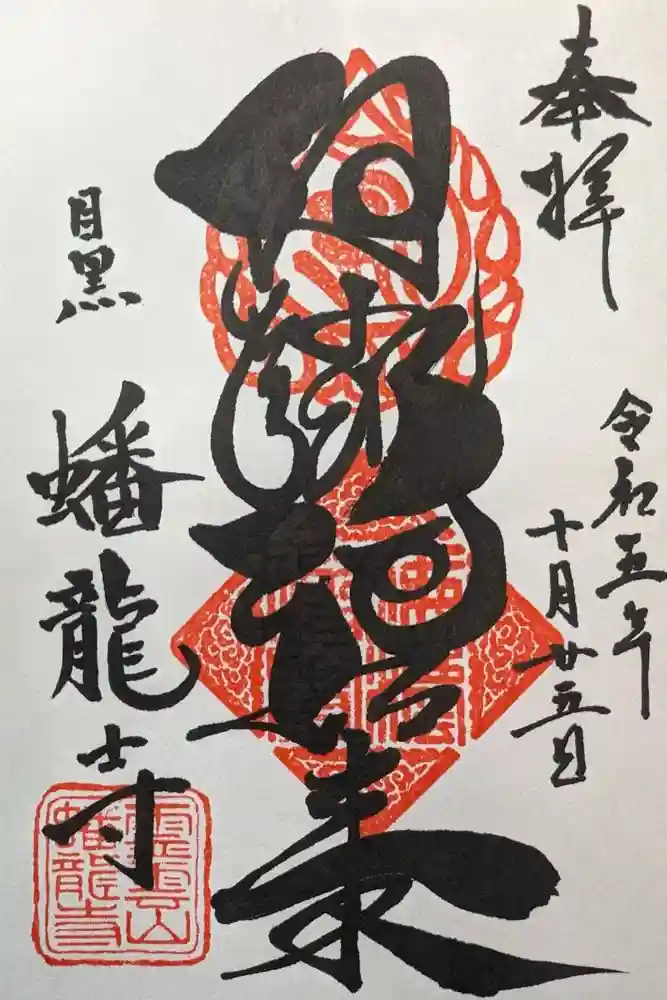 奉拝
令和五年
十月廿五日
阿弥陀如来
目黒
蟠龍寺
蟠龍寺